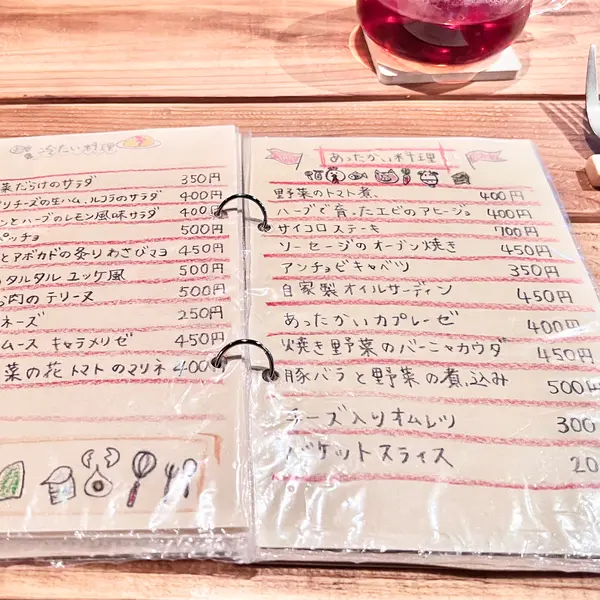 冷たい料理
菜だらけのサラダ 350円
プリチーズの生ハム、ルコラのサラダ 400円
ンとハーブのレモン風味サラダ 400
パッチョ 500円
とアボカドの炙りわさびマヨ 450円
のタルタル ユッケ風 500円
お肉のテリーヌ 500円
ネーズ 250円
ムース キャラメリゼ 450円
菜の花 トマト のマリネ 400
あったかい料理
野菜のトマト煮 400円
ハーブで育ったエビのアヒージョ 400円
サイコロステーキ 700円
ソーセージのオーブン焼き 450円
アンチョビキャベツ 350円
自家製オイルサーディン 450円
あったかいカプレーゼ 400円
焼き野菜のバーニャカウダ 450円
豚バラと野菜の煮込み 500円
チーズ入りオムレツ 300
バケットスライス 20